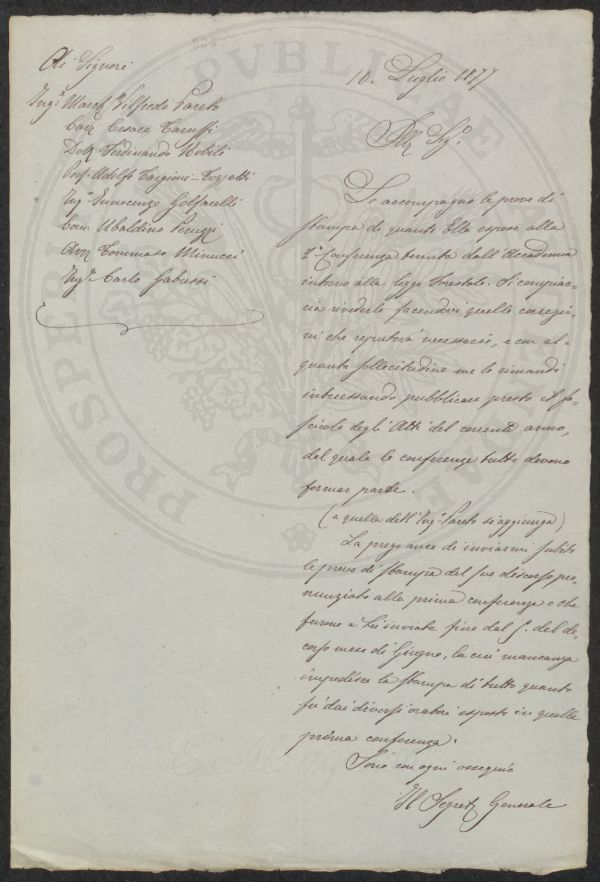 Ai Signori
Ing. March. Vilfredo Pareto
Cav. Cesare Taruffi
Dott. Ferdinando Nobili
Prof. Adolfo Targioni-Tozzetti
Ing. Innocenzo Golfarelli
Com. Ubaldino Peruzzi
Avv. Tommaso Minucci
Ing. Carlo Gabussi
10. Luglio 1877
Ill. Sig.
Le accompagno le prove di
stampa di quanto Ella espose alla
2ª Conferenza tenuta dall'Accademia
intorno alla legge Forestale. Si compiac-
cia rivederle facendovi quelle correzio-
ni che reputerà necessarie, e con al-
quanta sollecitudine me le rimandi
interessando pubblicare presto il fa-
scicolo degli Atti del corrente anno,
del quale le conferenze tutte devono
formar parte.
(a quella dell'Ing. Pareto si aggiunga)
La prego anco di inviarmi subito
le prove di stampa del suo discorso pro-
nunziato alla prima conferenza e che
furono a Lei inviate fino dal 5. del de-
corso mese di Giugno, la cui mancanza
impedisce la stampa di tutto quanto
fu dai diversi oratori esposto in quella
prima conferenza.
Sono con ogni ossequio
Il Segret. Generale
PROSPERITATI PUBLICAE AUGENDAE